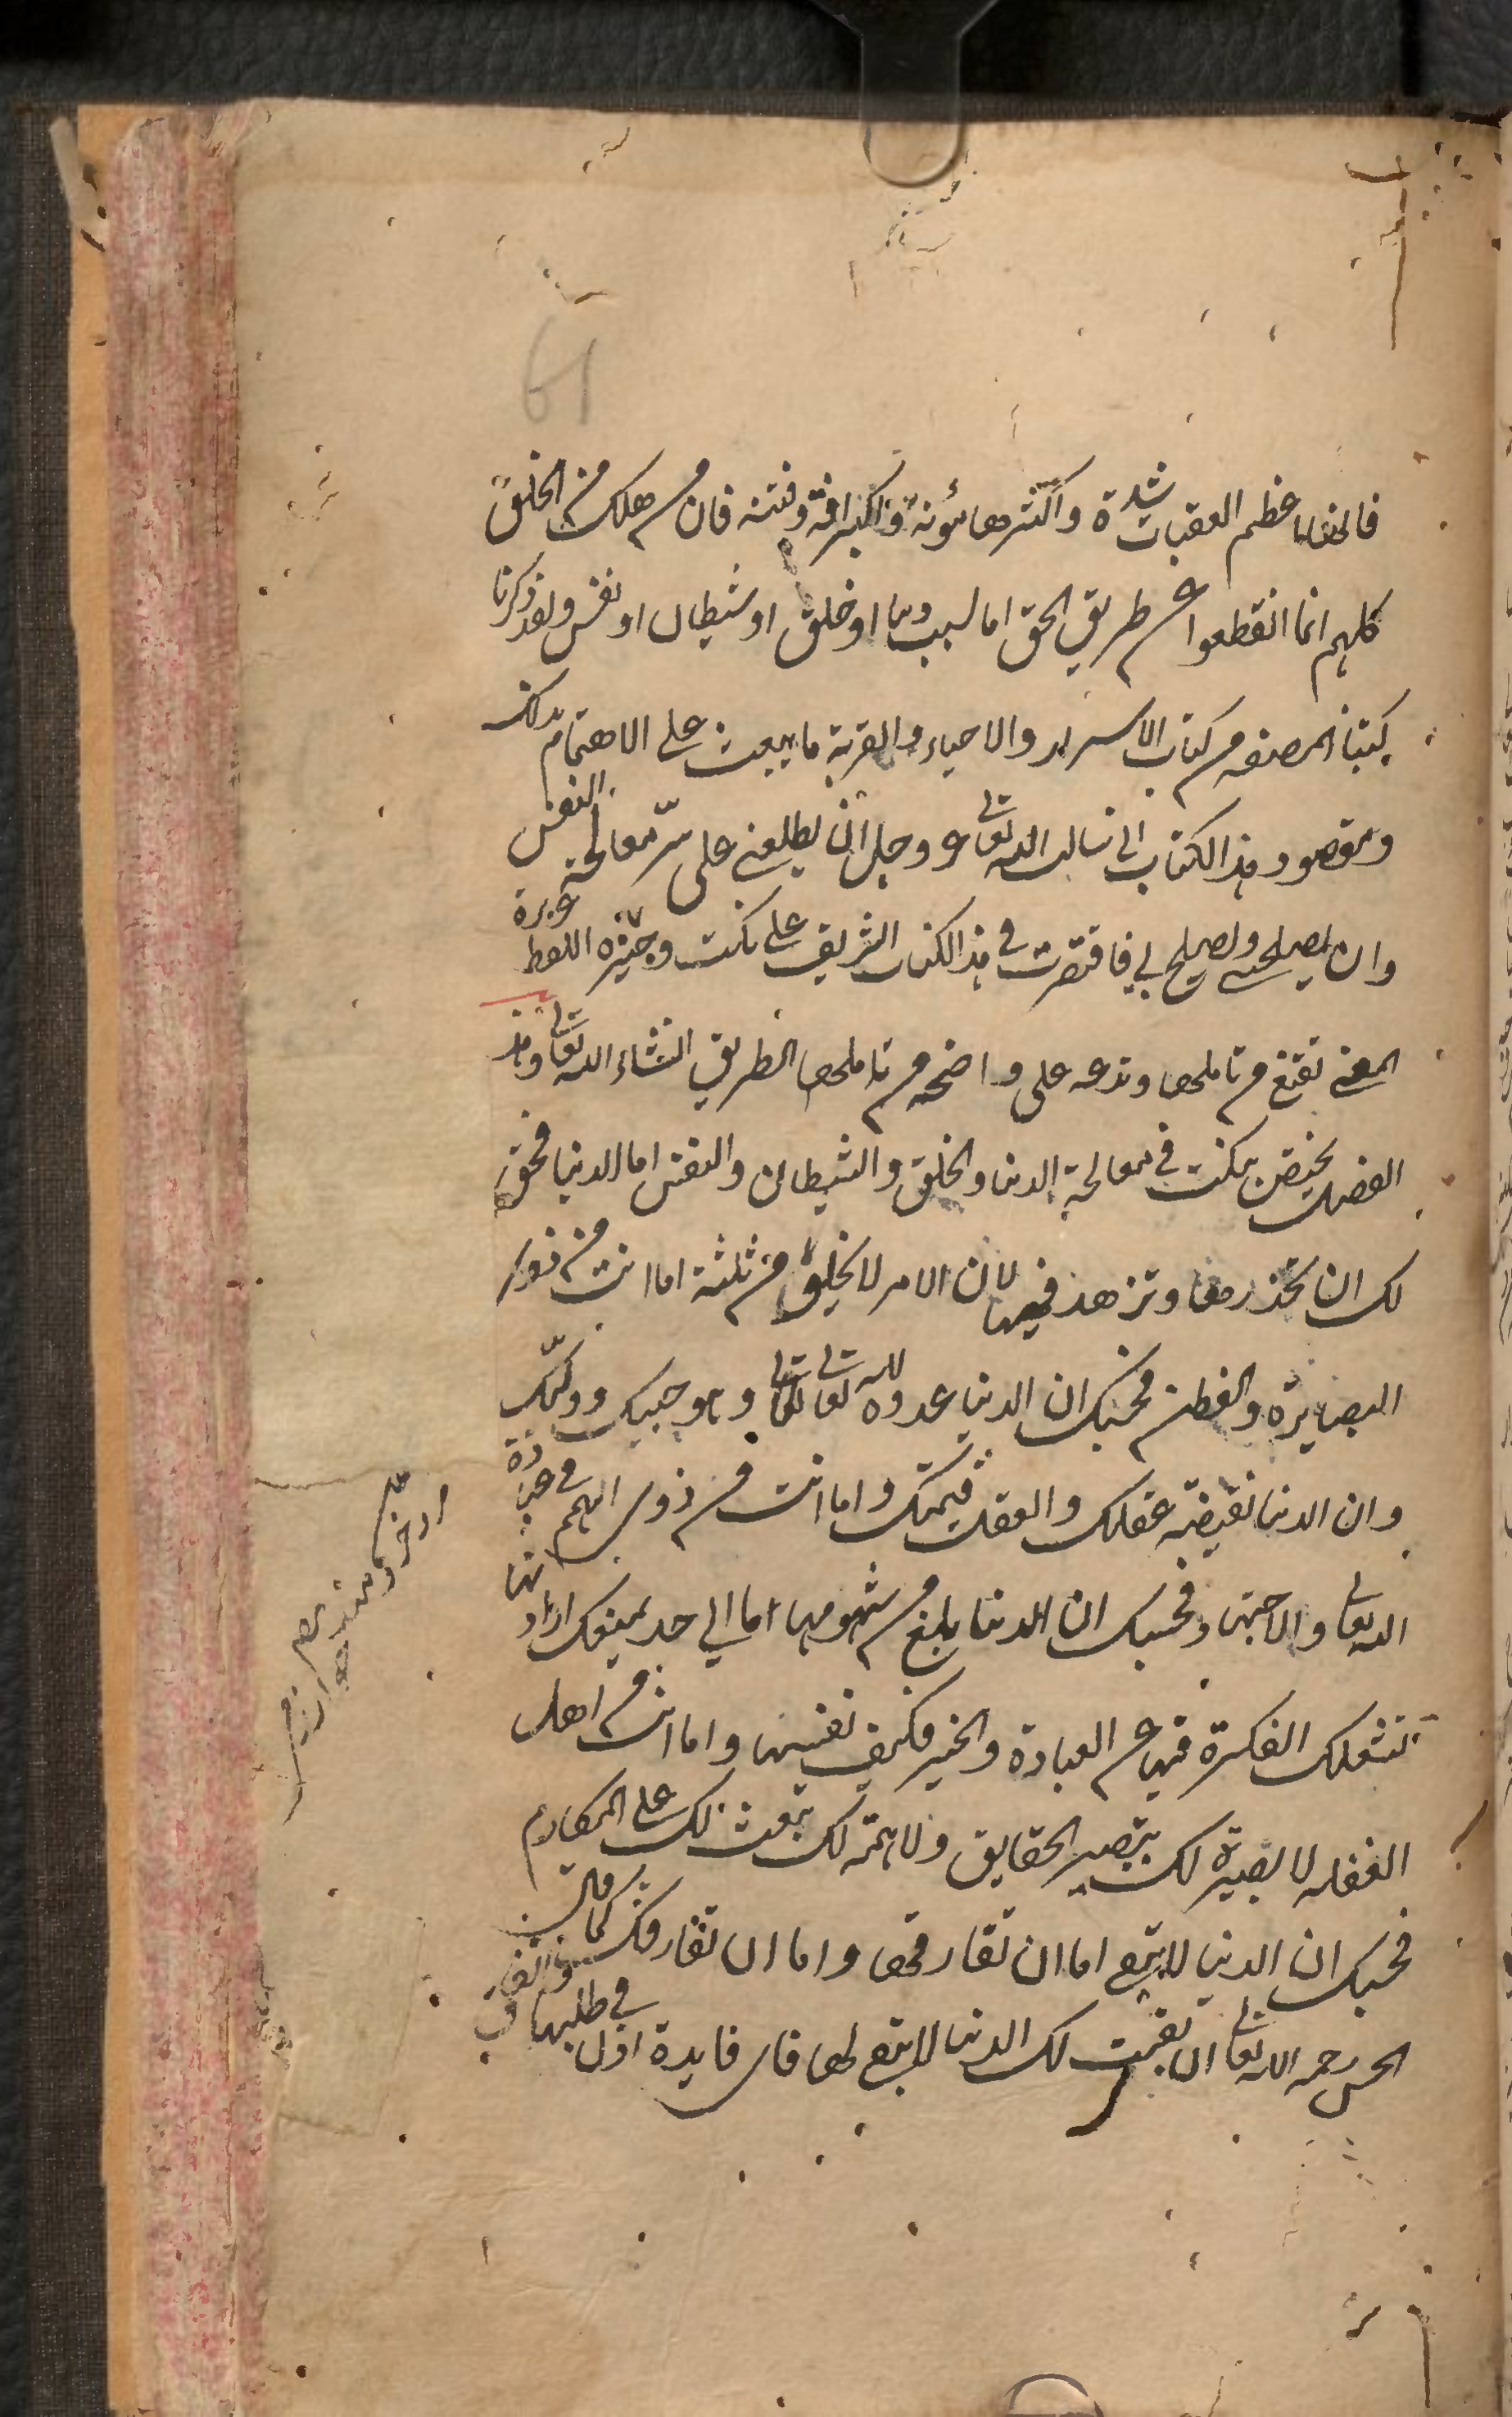 61
فانها اعظم العقبات شدة واكثرها مؤنة واكبر آفة وفتنة فان من هلك من الخلق
كلهم انما انقطعوا عن طريق الحق اما لسبب دنيا او خلق او شيطان او نفس ولقد ذكرنا
كتبنا المصنفه من كتاب الاسرار والاحياء والقربة ما يبعث على الاهتمام بذلك
ومقصود هذا الكتاب انى سالت الله تعالى عز وجل ان يطلعنى على سرّ معالجة النفس
وان يصلحنى ويصلح بى فاقتصرت فى هذا الكتاب الشريف على نكت وجيزه اللفظ غزيرة
المعنى تقنع من تاملها وتدعه على واضحه من تاملها الطريق انشاء الله تعالى وهذا
الفصل يختص بنكت فى معالجة الدنيا والخلق والشيطان والنفس اما الدنيا فحق
لك ان تحذر منها وتزهد فيها لان الامر لا يخلو من ثلثة اما انت من ذوى
البصايرة والفطن فحسبك ان الدنيا عدوة لله تعالى وهو حبيبك ووليّك
وان الدنيا نقيضة عقلك والعقل قيمتك واما انت من ذوى الهمم فى عبادة
الله تعالى والاجتهاد فحسبك ان الدنيا يبلغ من شومها اما الى حد يمنعك ارادتها
تشغلك الفكرة فيها عن العبادة والخير فكيف نفسها واما انت من اهل
الغفلة لا بصيرة لك تبصر الحقايق ولا همّة لك تبعث لك على المكارم
فحسبك ان الدنيا لا تبقى اما ان تفارقها واما ان تفارقك كما قال
الحسن رحمه الله تعالى ان بقيت لك الدنيا لا تبقى لها فاى فايدة اذن فى طلبها